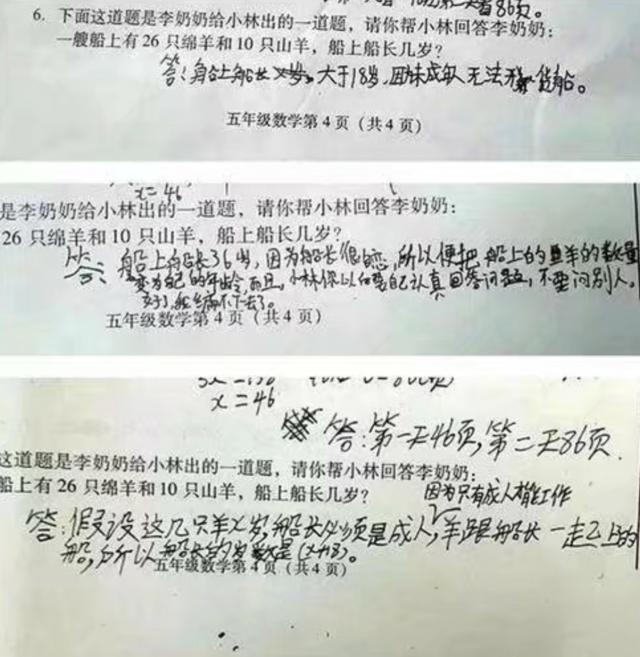 看86页。
6. 下面这道题是李奶奶给小林出的一道题，请你帮小林回答李奶奶：
一艘船上有 26 只绵羊和 10 只山羊，船上船长几岁？
答：船上船长x岁。大于18岁,因未成年人无法 货船。
五年级数学第 4 页（共 4 页）
x=46
是李奶奶给小林出的一道题，请你帮小林回答李奶奶：
26 只绵羊和 10 只山羊，船上船长几岁？
答：船上船长36岁,因为船长很自恋,所以便把船上的 羊的数量
变为自己的年龄,而且,小林你以 要自己认真回答问题,不要问别人。
五年级数学第 4 页（共 4 页）
x=46
答:第一天46页,第二天86页.
这道题是李奶奶给小林出的一道题，请你帮小林回答李奶奶：
船上有 26 只绵羊和 10 只山羊，船上船长几岁？
因为只有成人才能工作
答:假设这几只羊x岁,船长必须是成人,羊跟船长一起上的
船,所以船长的岁数是(x+18)。
五年级数学第 4 页（共 4 页）